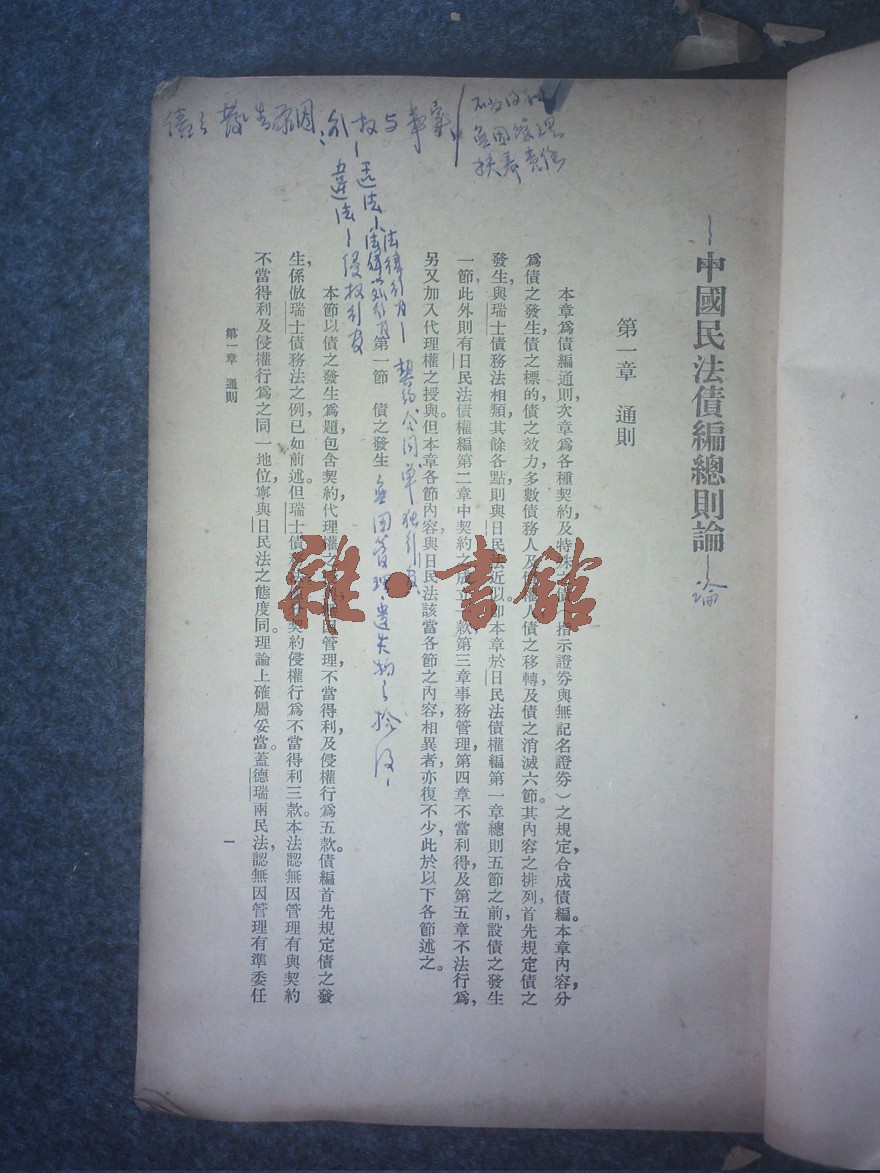 中國民法債編總則論
論
第一章 通則
本章爲債編通則，次章爲各種契約及特殊之債（指示證券與無記名證券）之規定，合成債編。本章內容，分
爲債之發生，債之標的，債之效力，多數債務人及債權人，債之移轉及債之消滅六節。其內容之排列，首先規定債之
發生，與瑞士債務法相類，其餘各點，則與日民法近似。即本章於日民法債權編第一章總則五節之前，設債之發生
一節，此外則有日民法債權編第二章中契約之成立一款，第三章事務管理，第四章不當利得，及第五章不法行爲，
另又加入代理權之授與。但本章各節內容，與日民法該當各節之內容相異者，亦復不少，此於以下各節述之。
第一節 債之發生
本節以債之發生爲題，包含契約，代理權之 因管理，不當得利，及侵權行爲五款。債編首先規定債之發
生，係倣瑞士債務法之例，已如前述。但瑞士債 契約侵權行爲不當得利三款。本法認無因管理有與契約
不當得利及侵權行爲之同一地位，寧與日民法之態度同。理論上確屬妥當。蓋德瑞兩民法，認無因管理有準委任
第一章 通則
一
債之發生原因
無因管理
違法－侵權行爲
法律行爲－契約 合同 單獨行爲
無因管理·遺失物之拾得
雜·書館